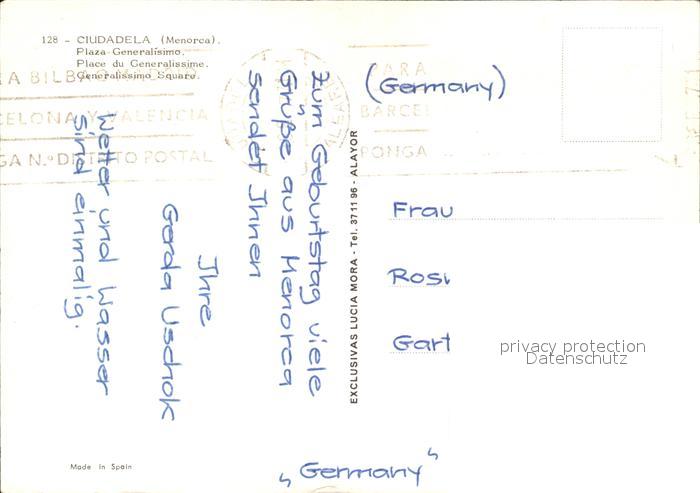 128 - CIUDADELA (Menorca).
Plaza Generalísimo.
Place du Generalissime.
Generalissimo Square.
RA BILBAO
CELONA Y VALENCIA
GA N.º DISTRITO POSTAL
PARA
BARCEL
PONGA
Zum Geburtstag viele
Grüße aus Menorca
sendet Ihnen
Ihre
Gerda Uschok
Wetter und Wasser
sind einmalig.
EXCLUSIVAS LUCIA MORA - Tel. 371196 - ALAYOR
(Germany)
Frau
Rosi
Gart
privacy protection
Datenschutz
"Germany"
Made in Spain